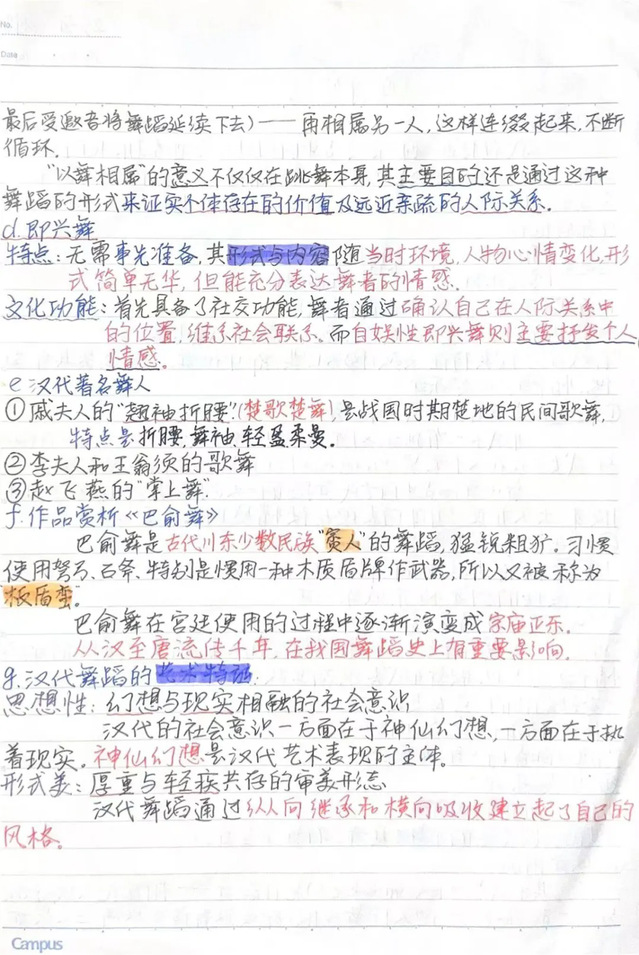 No.
Date
最后受邀者将舞蹈延续下去)——再相属另一人,这样连缀起来,不断
循环.
"以舞相属"的意义不仅仅在跳舞本身,其主要目的还是通过这种
舞蹈的形式来证实个体存在的价值及远近亲疏的人际关系。
d.即兴舞
特点:无需事先准备,其形式与内容随当时环境,人物心情变化,形
式简单无华,但能充分表达舞者的情感.
文化功能:首先具备了社交功能,舞者通过确认自己在人际关系中
的位置,维系社会联系。而自娱性即兴舞则主要抒发个人
情感。
e汉代著名舞人
①戚夫人的"翘袖折腰"(楚歌楚舞),是战国时期楚地的民间歌舞,
特点是折腰,舞袖,轻盈柔曼。
②李夫人和王翁须的歌舞
③赵飞燕的"掌上舞".
f.作品赏析《巴俞舞》
巴俞舞是古代川东少数民族"賨人"的舞蹈,猛锐粗犷.习惯
使用弩弓、石斧、特别是惯用一种木质盾牌作武器,所以又被称为
"板盾蛮"。
巴俞舞在宫廷使用的过程中逐渐演变成宗庙正乐.
从汉至唐流传千年,在我国舞蹈史上有重要影响.
g.汉代舞蹈的艺术特征:
思想性:幻想与现实相融的社会意识
汉代的社会意识一方面在于神仙幻想,一方面在于执
着现实。神仙幻想是汉代艺术表现的主体。
形式美:厚重与轻疾共存的审美形态
汉代舞蹈通过纵向继承和横向吸收建立起了自己的
风格。
Campus